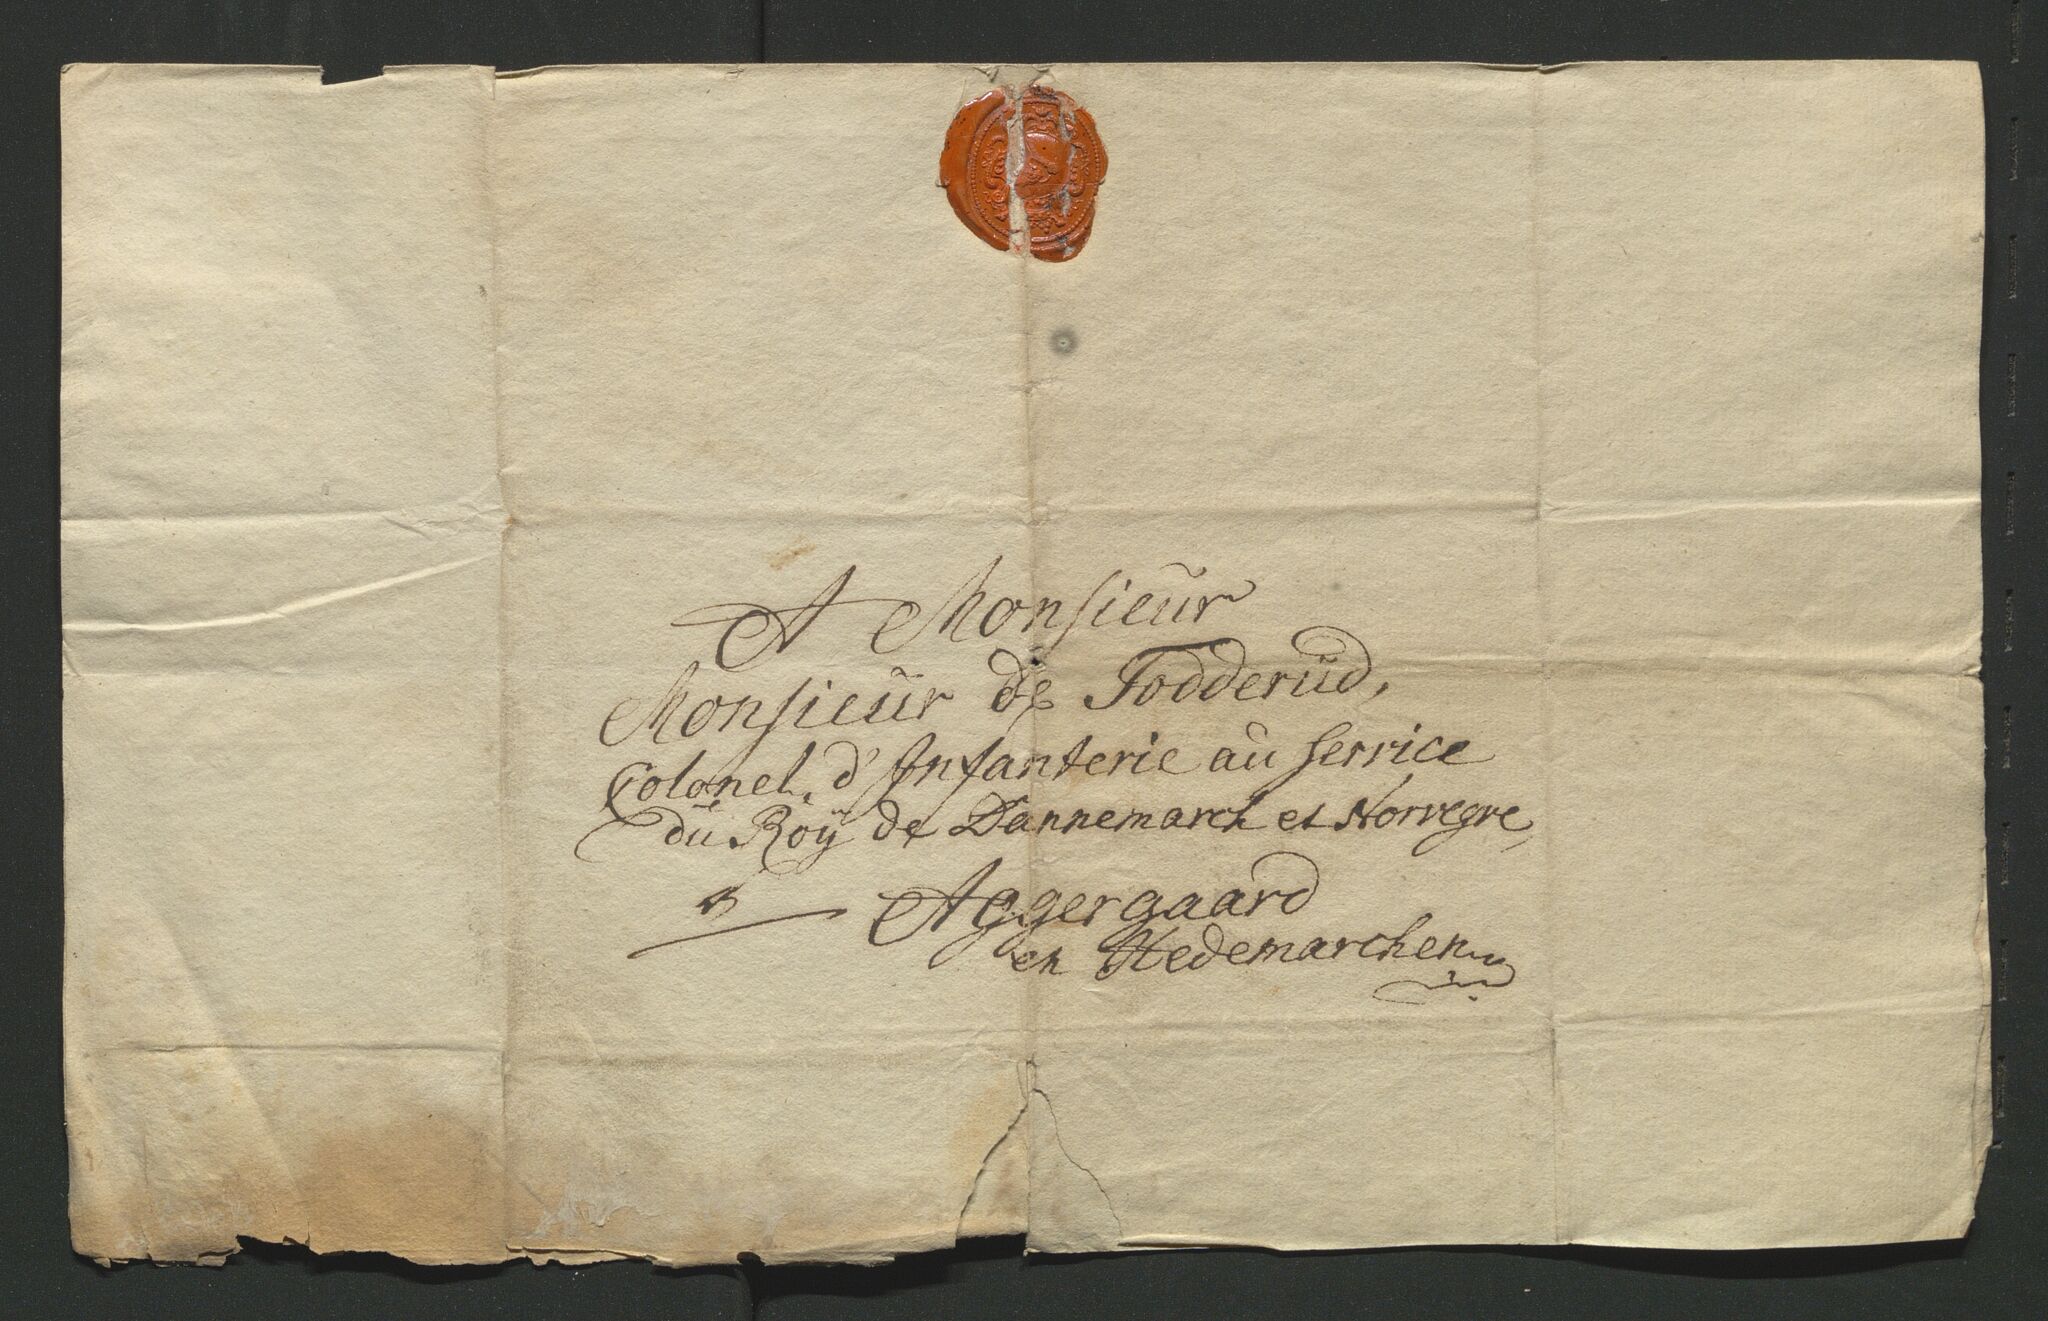 A Monsieur
Monsieur de Todderüd,
Colonel d'Infanterie au Service
du Roÿ de Dannemarch et Norvegve,
Aggergaard
en Hedemarchen